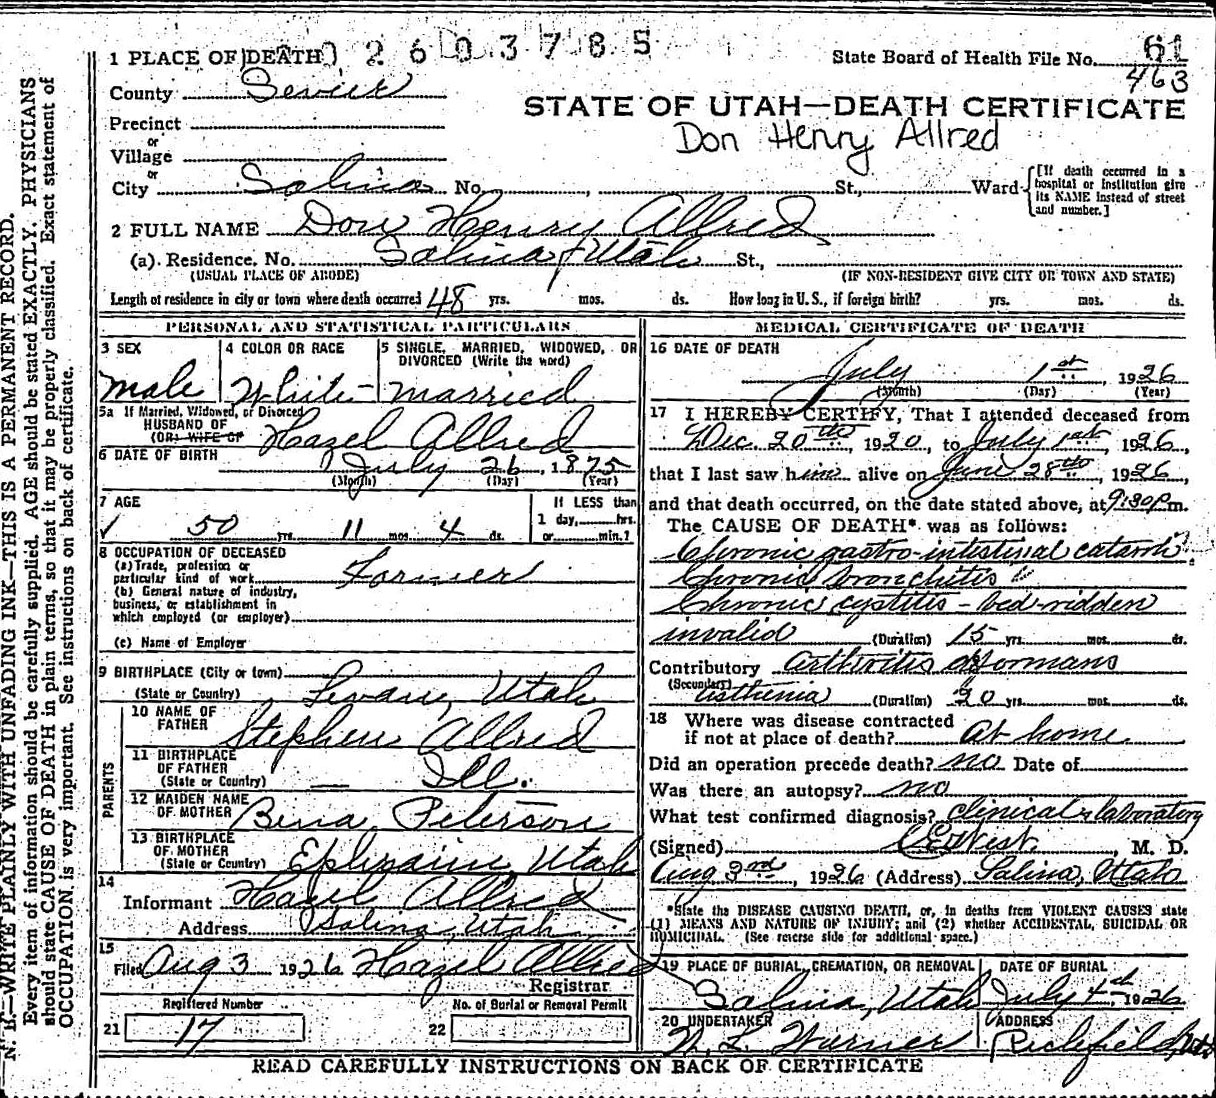 N. B.—WRITE PLAINLY WITH UNFADING INK—THIS IS A PERMANENT RECORD.
Every item of information should be carefully supplied. AGE should be stated EXACTLY. PHYSICIANS
should state CAUSE OF DEATH in plain terms, so that it may be properly classified. Exact statement of
OCCUPATION is very important. See instructions on back of certificate.
1 PLACE OF DEATH
0 2 6 0 3 7 8 5
State Board of Health File No. 61
463
County Sevier
STATE OF UTAH—DEATH CERTIFICATE
Don Henry Allred
Precinct
or
Village
or
City Salina No. , St., Ward
[If death occurred in a
hospital or institution give
its NAME instead of street
and number.]
2 FULL NAME Don Henry Allred
(a). Residence, No. Salina, Utah St.,
(USUAL PLACE OF ABODE) (IF NON-RESIDENT GIVE CITY OR TOWN AND STATE)
Length of residence in city or town where death occurred 48 yrs. mos. ds. How long in U. S., if foreign birth? yrs. mos. ds.
PERSONAL AND STATISTICAL PARTICULARS
3 SEX
male
4 COLOR OR RACE
White
5 SINGLE, MARRIED, WIDOWED, OR
DIVORCED (Write the word)
married
5a If Married, Widowed, or Divorced
HUSBAND OF
(OR) WIFE OF
Hazel Allred
6 DATE OF BIRTH July 26, 1875
(Month) (Day) (Year)
7 AGE
50 yrs. 11 mos. 4 ds.
If LESS than
1 day, hrs.
or min.?
8 OCCUPATION OF DECEASED
(a) Trade, profession or
particular kind of work Farmer
(b) General nature of industry,
business, or establishment in
which employed (or employer)
(c) Name of Employer
9 BIRTHPLACE (City or town)
(State or Country) Levan, Utah
PARENTS
10 NAME OF
FATHER
Stephen Allred
11 BIRTHPLACE
OF FATHER
(State or Country) Ill.
12 MAIDEN NAME
OF MOTHER Bena Peterson
13 BIRTHPLACE
OF MOTHER
(State or Country) Ephraim, Utah
14
Informant Hazel Allred
Address Salina, Utah
15
Filed Aug 3 1926 Hazel Allred
Registrar
Registered Number
21 17
No. of Burial or Removal Permit
22
MEDICAL CERTIFICATE OF DEATH
16 DATE OF DEATH
July 1st, 1926
(Month) (Day) (Year)
17 I HEREBY CERTIFY, That I attended deceased from
Dec. 20th, 1920, to July 1st, 1926,
that I last saw him alive on June 28th, 1926,
and that death occurred, on the date stated above, at 9:30 P.m.
The CAUSE OF DEATH* was as follows:
Chronic gastro-intestinal catarrh
Chronic bronchitis
Chronic cystitis - bed-ridden
invalid (Duration) 15 yrs. mos. ds.
Contributory arthritis deformans
(Secondary) asthenia (Duration) 20 yrs. mos. ds.
18 Where was disease contracted
if not at place of death? At home
Did an operation precede death? no Date of
Was there an autopsy? no
What test confirmed diagnosis? clinical & laboratory
(Signed) C E West, M. D.
Aug 3rd, 1926 (Address) Salina, Utah
*State the DISEASE CAUSING DEATH, or, in deaths from VIOLENT CAUSES state
(1) MEANS AND NATURE OF INJURY; and (2) whether ACCIDENTAL, SUICIDAL OR
HOMICIDAL. (See reverse side for additional space.)
19 PLACE OF BURIAL, CREMATION, OR REMOVAL
Salina, Utah
DATE OF BURIAL
July 4th, 1926
20 UNDERTAKER
N. L. Warner
ADDRESS
Richfield
READ CAREFULLY INSTRUCTIONS ON BACK OF CERTIFICATE